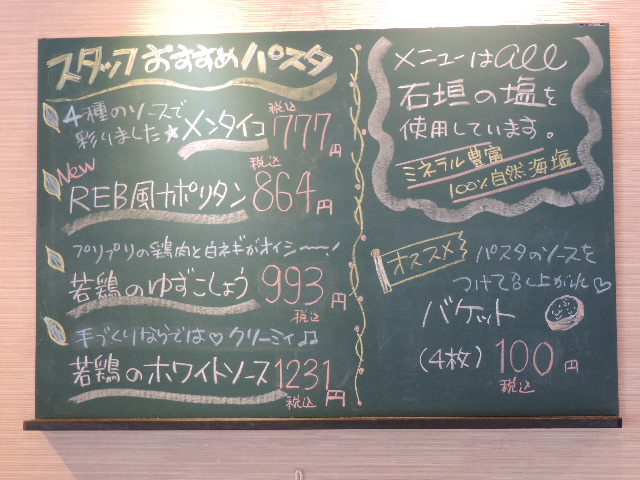 スタッフおすすめパスタ
4種のソースで
彩りました★メンタイコ 税込 777円
New
REB風ナポリタン 税込 864円
プリプリの鶏肉と白ネギがオイシ〜〜!
若鶏のゆずこしょう 993円 税込
手づくりならでは♡クリーミィ♫
若鶏のホワイトソース 1231円 税込
メニューはall
石垣の塩を
使用しています。
ミネラル豊富
100%自然海塩
オススメ
パスタのソースを
つけてめし上がれ♡
バケット
(4枚) 100円
税込